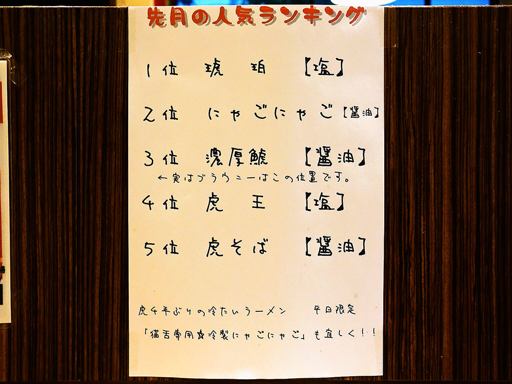 先月の人気ランキング
1位 琥珀 【塩】
2位 にゃごにゃご【醤油】
3位 濃厚鯱 【醤油】
←実はブラウニーはこの位置です。
4位 虎王 【塩】
5位 虎そば 【醤油】
虎千年ぶりの冷たいラーメン 平日限定
「猫舌専用☆冷製にゃごにゃご」も宜しく!!